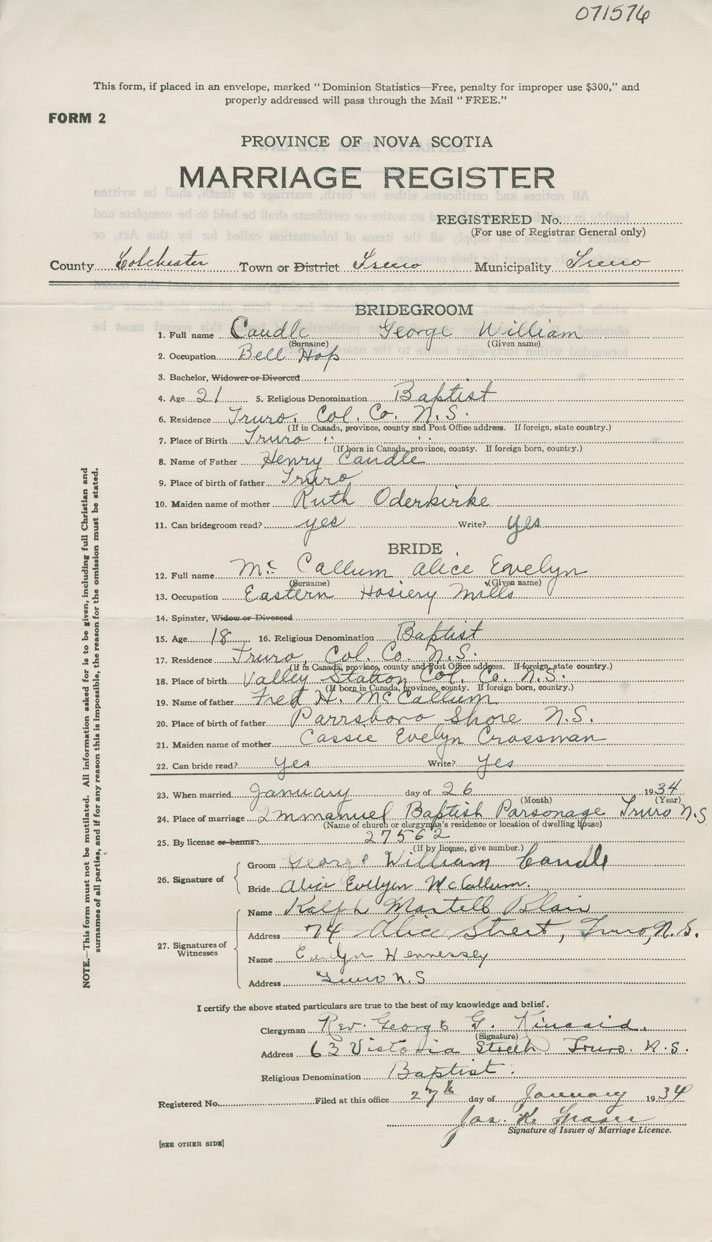 071576
This form, if placed in an envelope, marked "Dominion Statistics—Free, penalty for improper use $300," and
properly addressed will pass through the Mail "FREE."
FORM 2
PROVINCE OF NOVA SCOTIA
MARRIAGE REGISTER
REGISTERED No.
(For use of Registrar General only)
County Colchester Town or District Truro Municipality Truro
BRIDEGROOM
1. Full name Caudle George William
(Surname) (Given name)
2. Occupation Bell Hop
3. Bachelor, Widower or Divorced
4. Age 21 5. Religious Denomination Baptist
6. Residence Truro, Col. Co. N.S.
(If in Canada, province, county and Post Office address. If foreign, state country.)
7. Place of Birth Truro " "
(If born in Canada, province, county. If foreign born, country.)
8. Name of Father Henry Caudle
9. Place of birth of father Truro
10. Maiden name of mother Ruth Oderkirke
11. Can bridegroom read? yes Write? yes
BRIDE
12. Full name McCallum Alice Evelyn
(Surname) (Given name)
13. Occupation Eastern Hosiery Mills
14. Spinster, Widow or Divorced
15. Age 18 16. Religious Denomination Baptist
17. Residence Truro, Col. Co. N.S.
(If in Canada, province, county and Post Office address. If foreign, state country.)
18. Place of birth Valley Station Col. Co. N.S.
(If born in Canada, province, county. If foreign born, country.)
19. Name of father Fred H. McCallum
20. Place of birth of father Parrsboro Shore N.S.
21. Maiden name of mother Cassie Evelyn Crossman
22. Can bride read? Yes Write? Yes
23. When married January day of 26 1934
(Month) (Year)
24. Place of marriage Immanuel Baptish Parsonage Truro N.S
(Name of church or clergyman's residence or location of dwelling house)
25. By license or banns? 27562
(If by license, give number.)
26. Signature of
Groom George William Caudle
Bride Alice Evelyn McCallum.
27. Signatures of Witnesses
Name Ralph Martell Blair
Address 74 Alice Street, Truro, N.S.
Name Evelyn Hennessey
Address Truro N.S
I certify the above stated particulars are true to the best of my knowledge and belief.
Clergyman Rev. George G. Kincaid.
(Signature)
Address 63 Victoria Street Truro. N.S.
Religious Denomination Baptist.
Registered No. Filed at this office 27th day of January 1934
Jas. K. Fraser
Signature of Issuer of Marriage Licence.
[SEE OTHER SIDE]
NOTE.—This form must not be mutilated. All information asked for is to be given, including full Christian and
surnames of all parties, and if for any reason this is impossible, the reason for the omission must be stated.